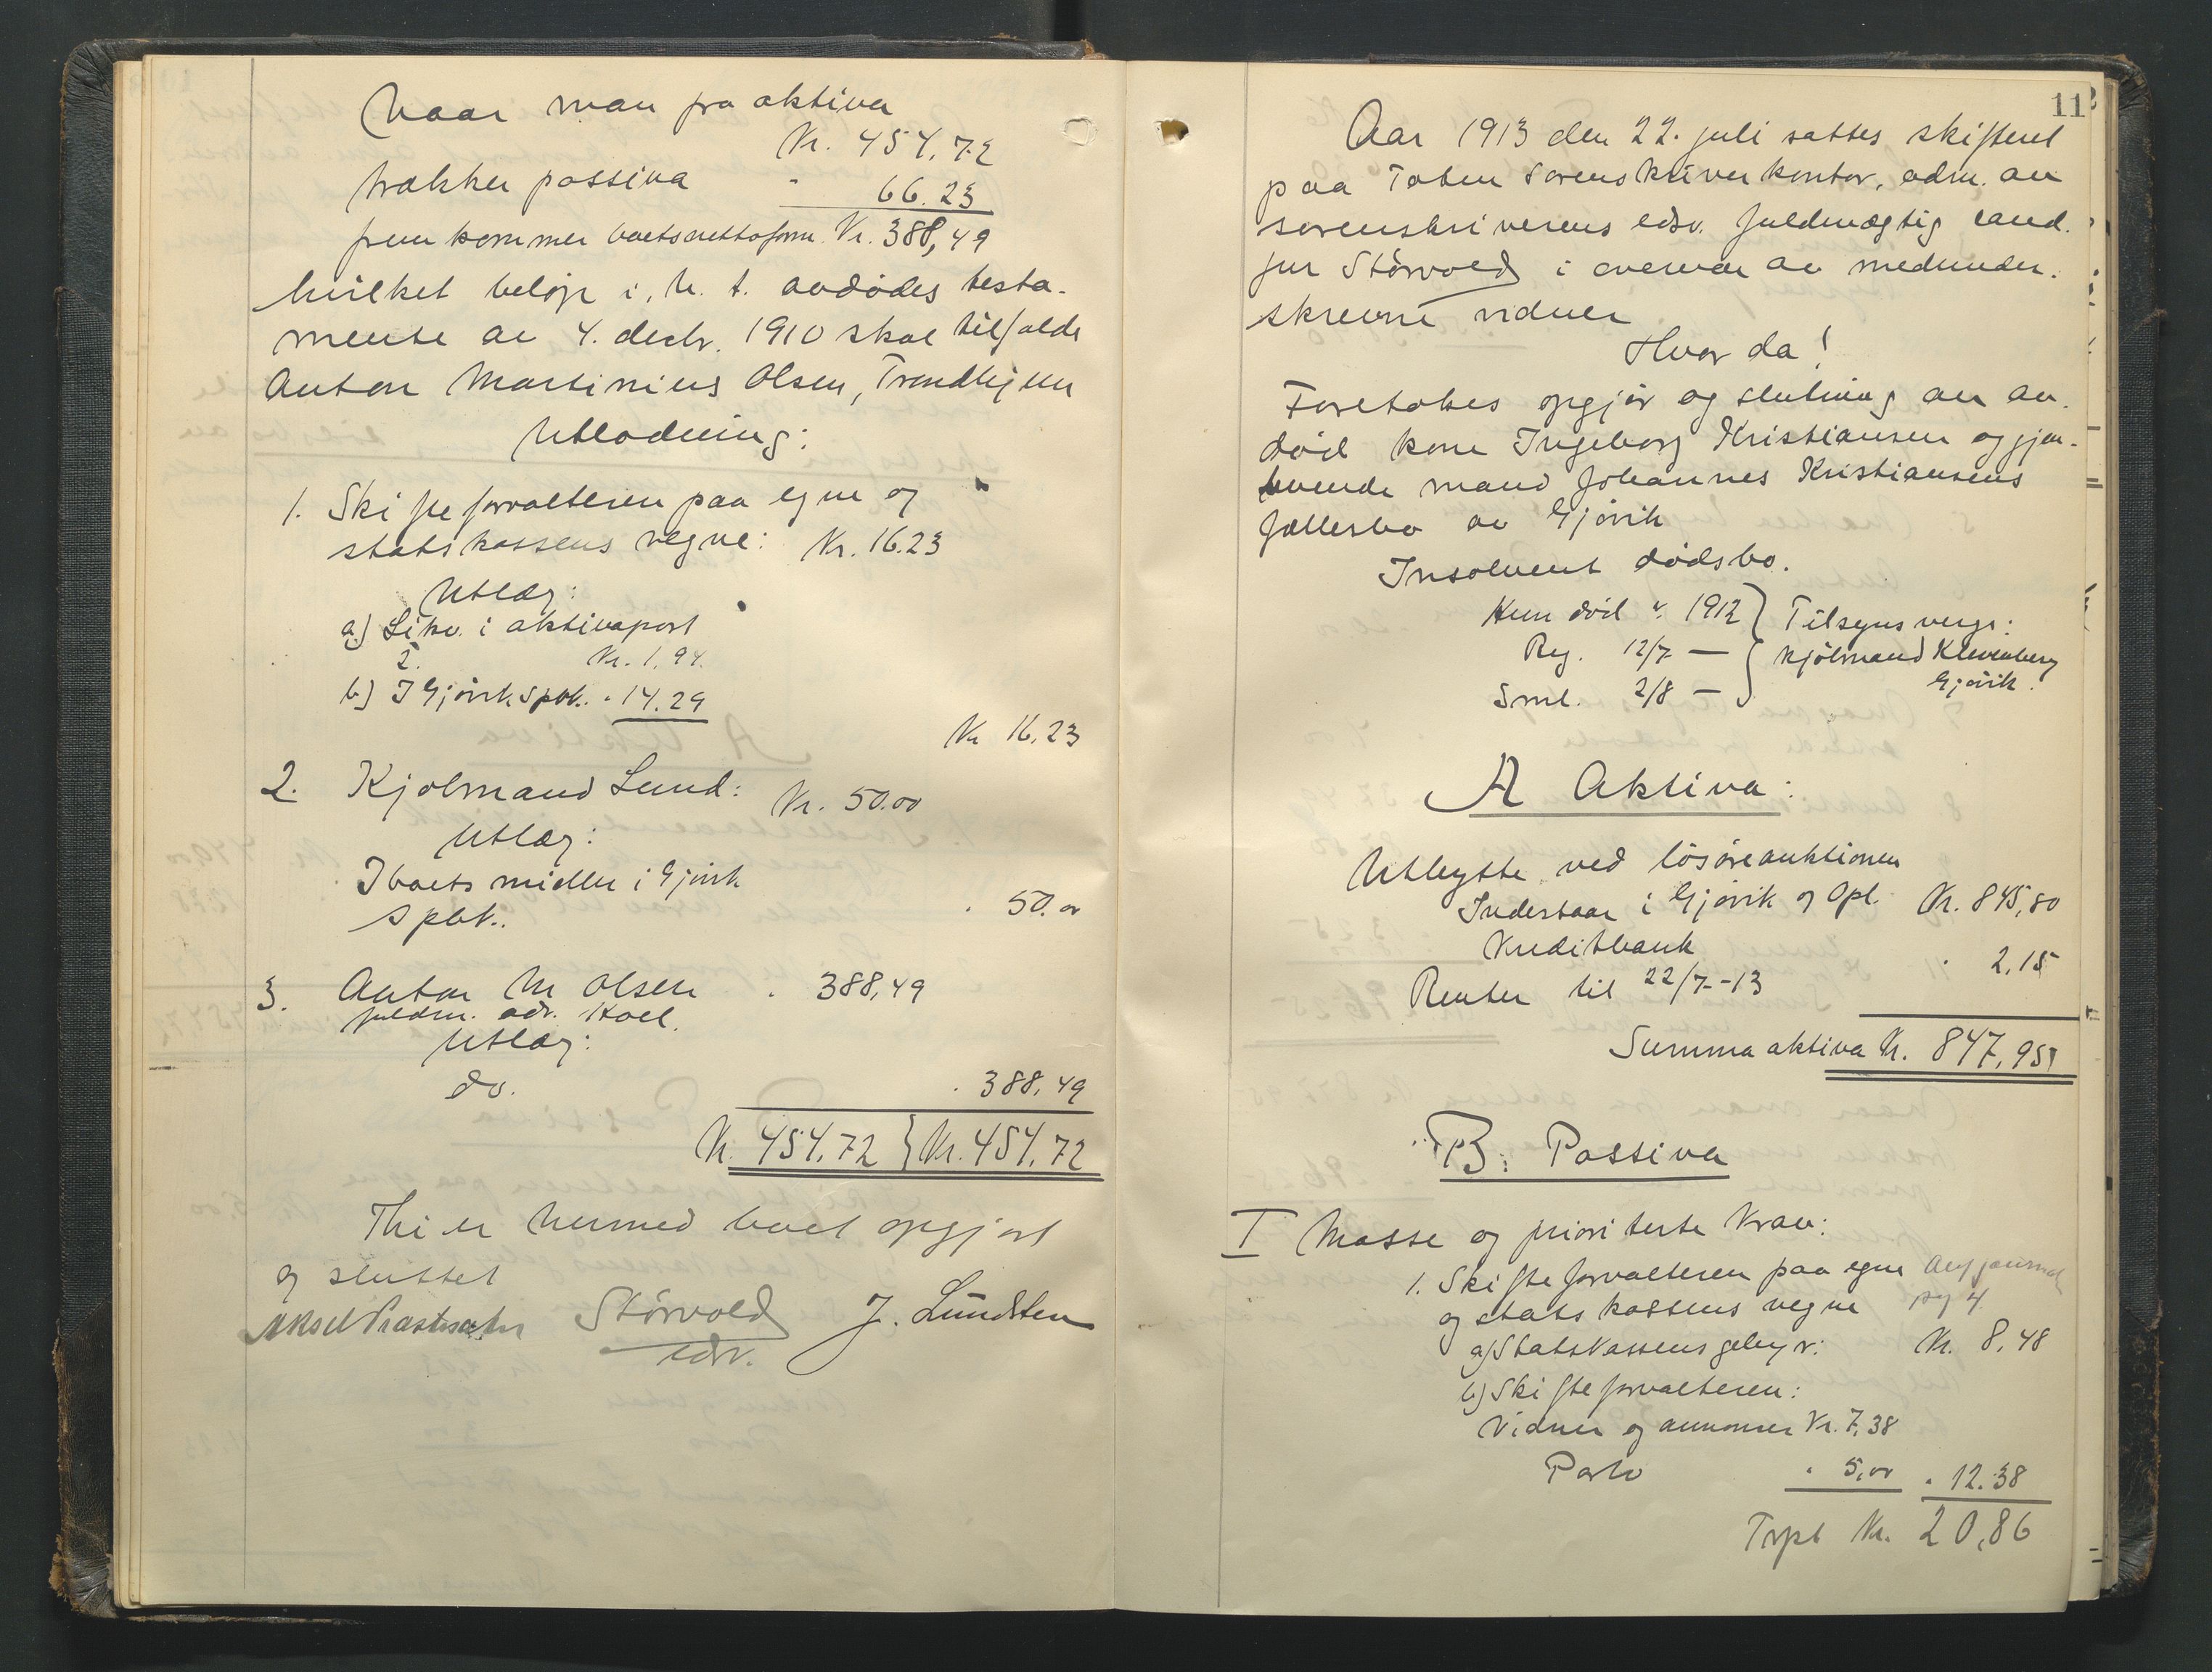 Naar man fra aktiva
Kr. 454,72
trækker passiva " 66.23
fremkommer boets nettoform. Kr. 388,49
hvilket beløp i. h. t. avdødes testa-
mente av 4. decbr. 1910 skal tilfalde
Anton Martinius Olsen, Trondhjem
Utlodning:
1. Skifteforvalteren paa egne og
statskassens vegne: Kr. 16.23
Utlæg:
a) Likv. i aktivapost
2. Kr. 1,94.
b) I Gjøvik Spbk. " 14.29
Kr 16,23
2. Kjølmand Lund: Kr. 50.00
Utlæg:
I boets midler i Gjøvik
Spbk. " 50.00
3. Anton M Olsen " 388,49
fuldm. adv. Hoel.
Utlæg:
do. " 388,49
Kr. 454,72 } Kr. 454,72
Thi er hermed boet opgjort
og sluttet
Aksel Størvold J. Lundsten
edsv.
11
Aar 1913 den 22. juli sattes skifteret
paa Toten Sorenskriverkontor, adm. av
sorenskriverens edsv. fuldmægtig cand.
jur Størvold i overvær av medunder-
skrevne vidner
Hvor da!
Foretokes opgjør og slutning av av-
død kone Ingeborg Kristiansen og gjen-
levende mand Johannes Kristiansens
fællesbo av Gjøvik
Insolvent dødsbo.
Hun død v. 1912 } Tilsynsverge:
Reg. 12/7 — Kjølmand Klevenberg
Sml. 2/8 — Gjøvik.
A Aktiva:
Utbytte ved løsøreauktionen
Indestaar i Gjøvik og Opl. Kr. 845,80
Kreditbank
Renter til 22/7-13 " 2,15
Summa aktiva Kr. 847,95
B. Passiva
I Masse og prioriterte Krav:
1. Skifteforvalteren paa egne
og statskassens vegne pg 4
a) Statskassens gebyr: Kr. 8,48
b) Skifteforvalteren:
Vidner og annonser Kr. 7,38
Porto " 5,00 " 12.38
Trpt Kr. 20,86